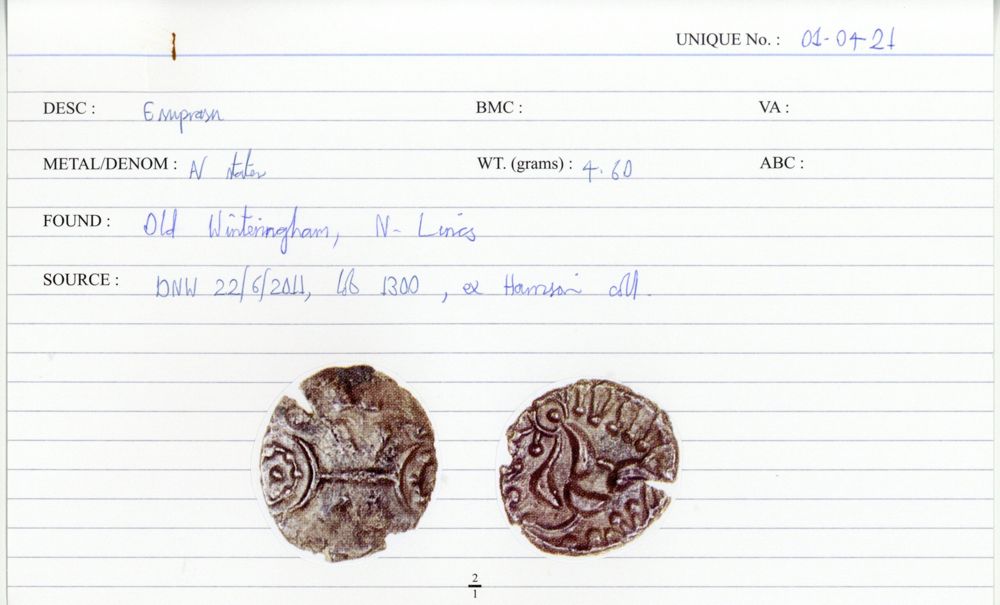 UNIQUE No. : 01-04-21
DESC : Esuprasu BMC : VA :
METAL/DENOM : N stater WT. (grams) : 4.60 ABC :
FOUND : Old Winteringham, N- Lincs
SOURCE : DNW 22/6/2011, lot 1300, ex Harrison coll.
2
1